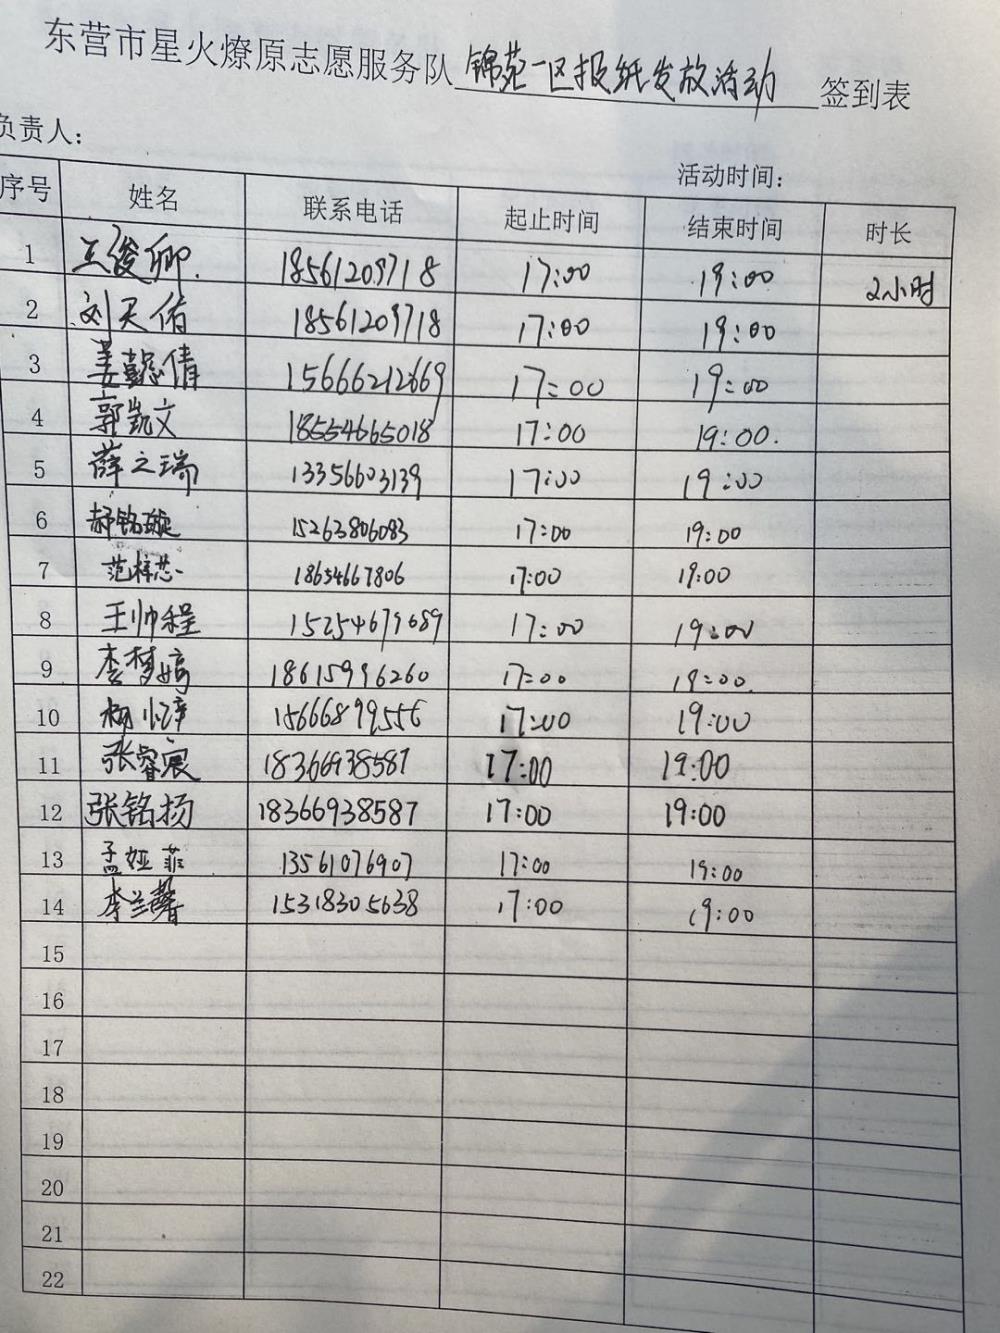 东营市星火燎原志愿服务队锦苑一区报纸发放活动签到表
负责人:
活动时间:
序号 姓名 联系电话 起止时间 结束时间 时长
1 王俊卿 18561209718 17:00 19:00 2小时
2 刘天佑 18561209718 17:00 19:00
3 姜懿倩 15666212669 17:00 19:00
4 郭凯文 18554665018 17:00 19:00.
5 薛之瑞 13356603139 17:00 19:00
6 郝铭璇 15263806083 17:00 19:00
7 范梓芯 18654667806 17:00 19:00
8 王帅程 15254679689 17:00 19:00
9 李梦婷 18615996260 17:00 19:00.
10 15666899556 17:00 19:00
11 张睿宸 18366938587 17:00 19:00
12 张铭扬 18366938587 17:00 19:00
13 孟娅菲 13561076907 17:00 19:00
14 李兰馨 15318305638 17:00 19:00
15
16
17
18
19
20
21
22